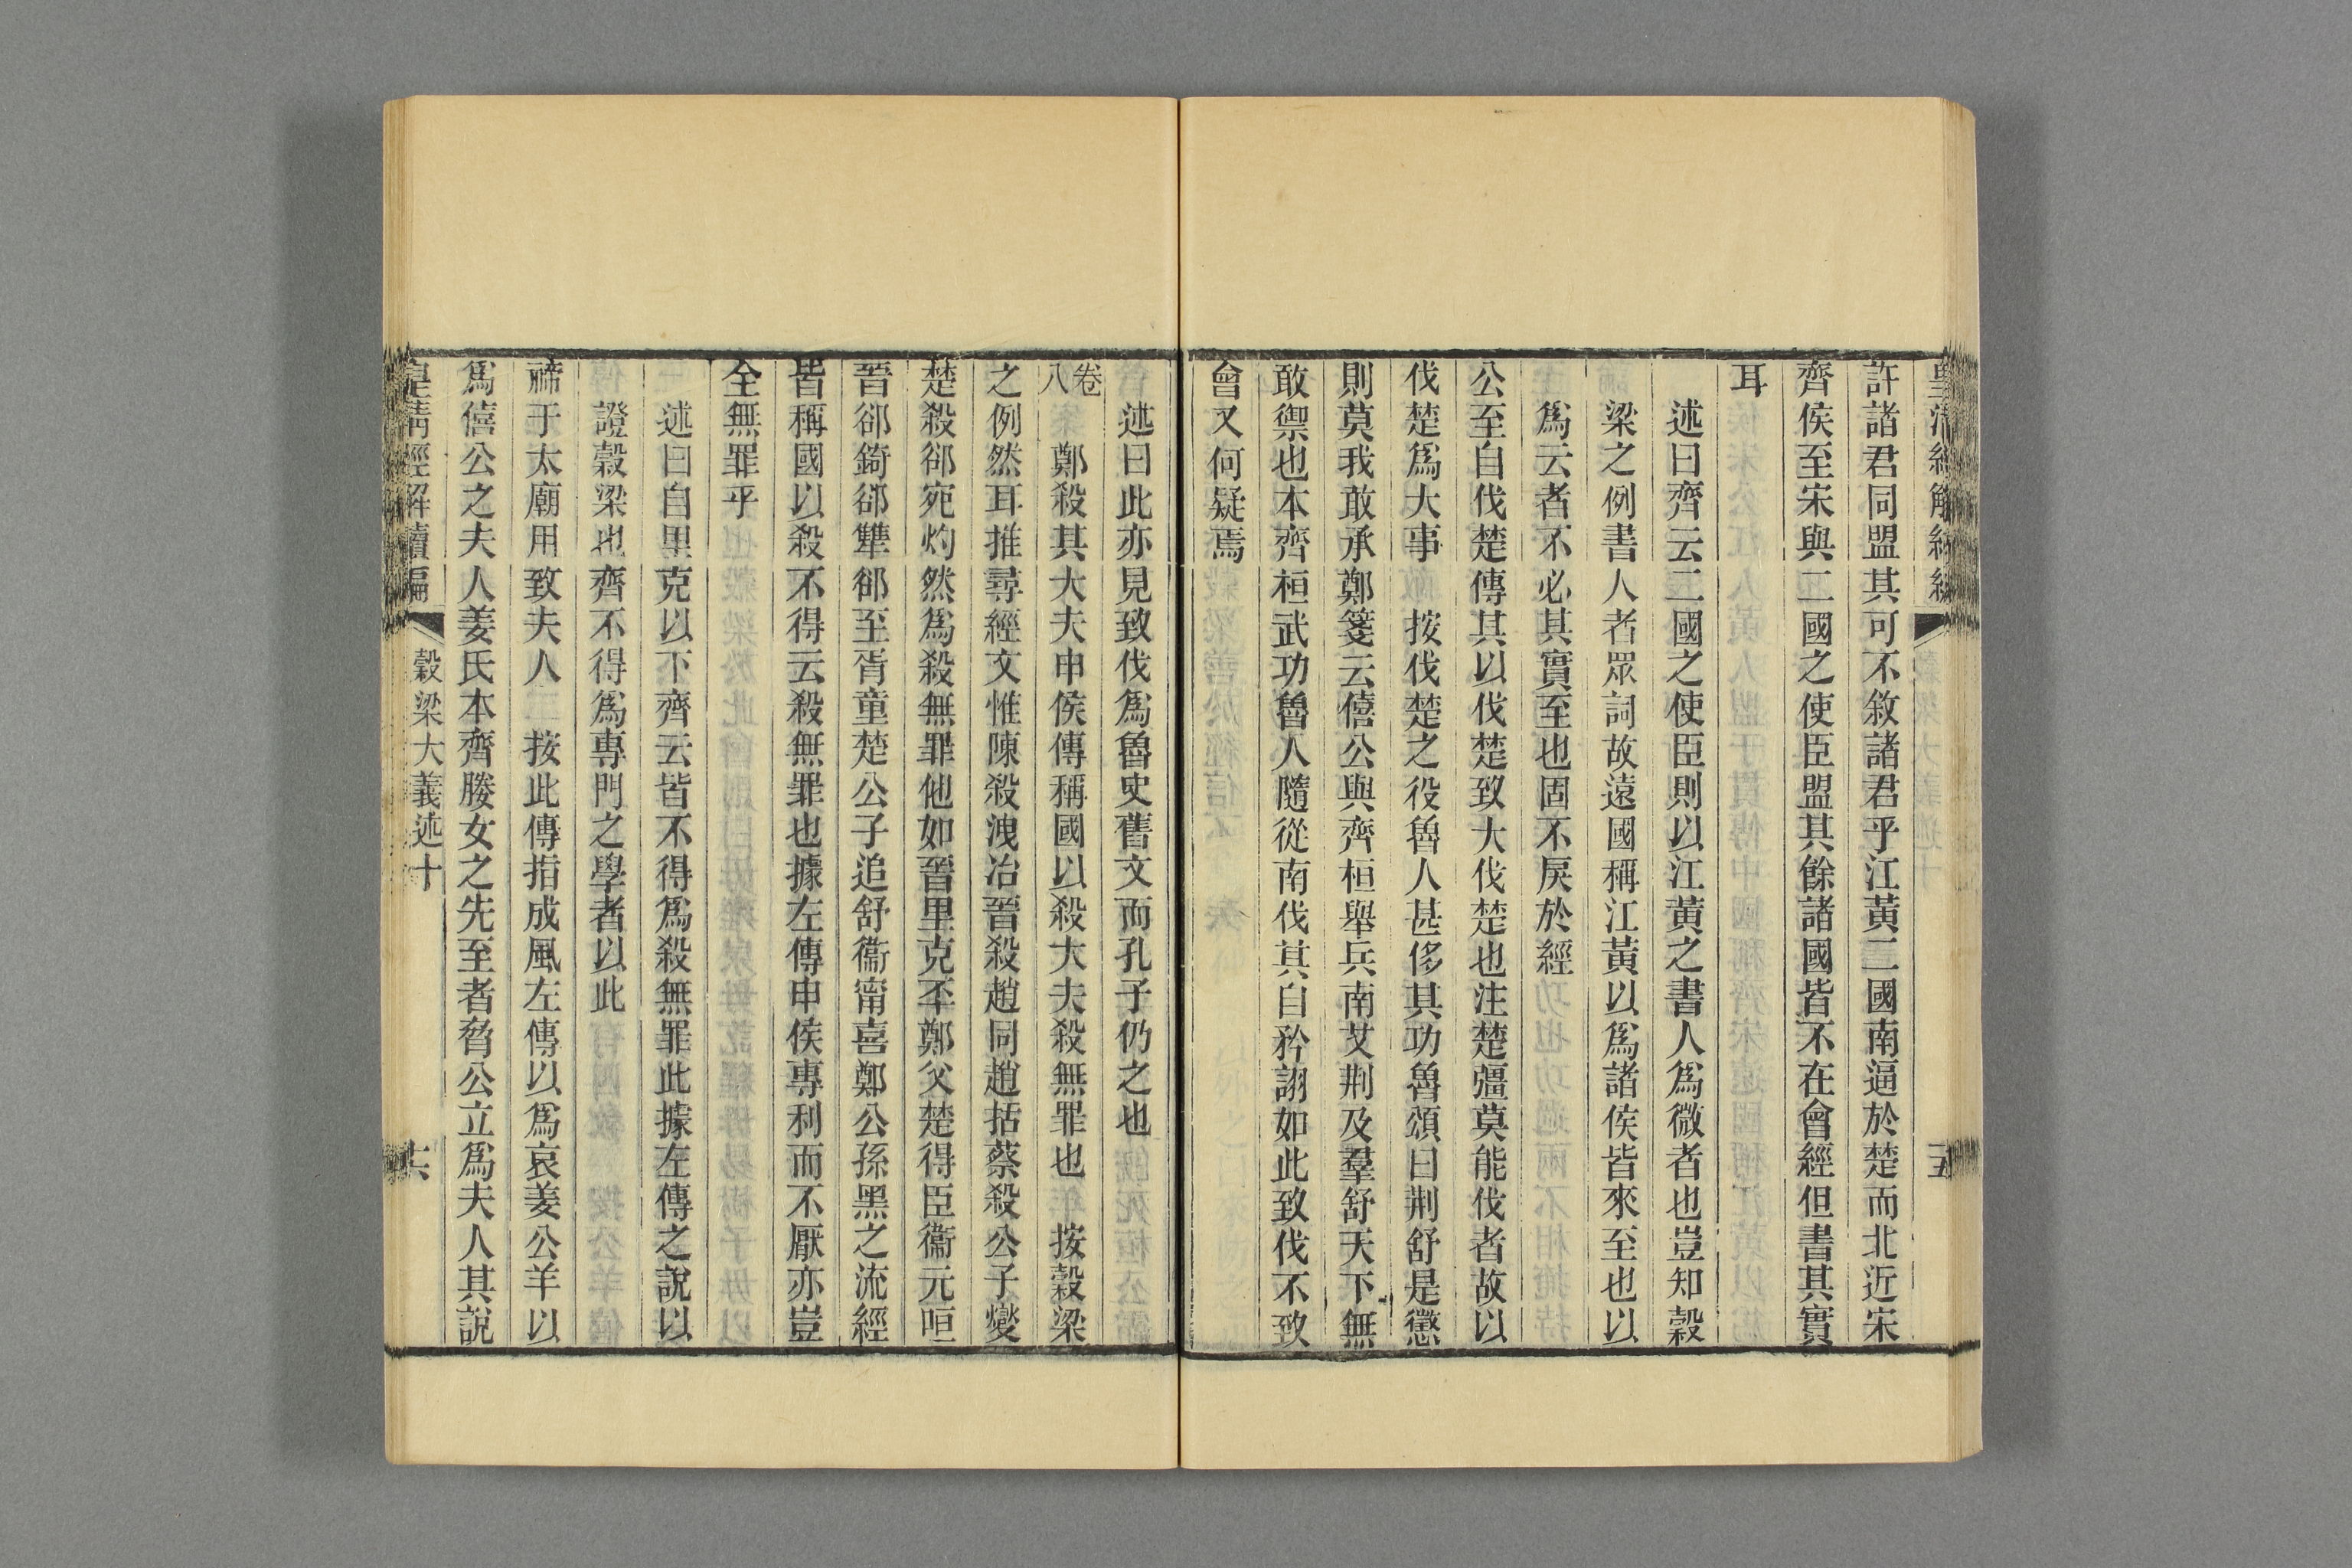 許諸君同盟其可不敘諸君乎江黃二國南逼於楚而北近宋
齊侯至宋與二國之使臣盟其餘諸國皆不在會經但書其實
耳
述曰齊云二國之使臣則以江黃之書人爲微者也豈知穀
梁之例書人者眾詞故遠國稱江黃以爲諸侯皆來至也以
爲云者不必其實至也固不戾於經
公至自伐楚傳其以伐楚致大伐楚也注楚彊莫能伐者故以
伐楚爲大事　按伐楚之役魯人甚侈其功魯頌曰荆舒是懲
則莫我敢承鄭箋云僖公與齊桓舉兵南艾荆及羣舒天下無
敢禦也本齊桓武功魯人隨從南伐其自矜詡如此致伐不致
會又何疑焉
述曰此亦見致伐爲魯史舊文而孔子仍之也
卷八　鄭殺其大夫申侯傳稱國以殺大夫殺無罪也　按穀梁
之例然耳推尋經文惟陳殺洩冶晉殺趙同趙括蔡殺公子燮
楚殺郤宛灼然爲殺無罪他如晉里克丕鄭父楚得臣衞元咺
晉郤錡郤犫郤至胥童楚公子追舒衞甯喜鄭公孫黑之流經
皆稱國以殺不得云殺無罪也據左傳申侯專利而不厭亦豈
全無罪乎
述曰自里克以下齊云皆不得爲殺無罪此據左傳之說以
證穀梁也齊不得爲專門之學者以此
禘于太廟用致夫人　按此傳指成風左傳以爲哀姜公羊以
爲僖公之夫人姜氏本齊媵女之先至者脅公立爲夫人其說
皇清經解續編　穀梁大義述十　十六